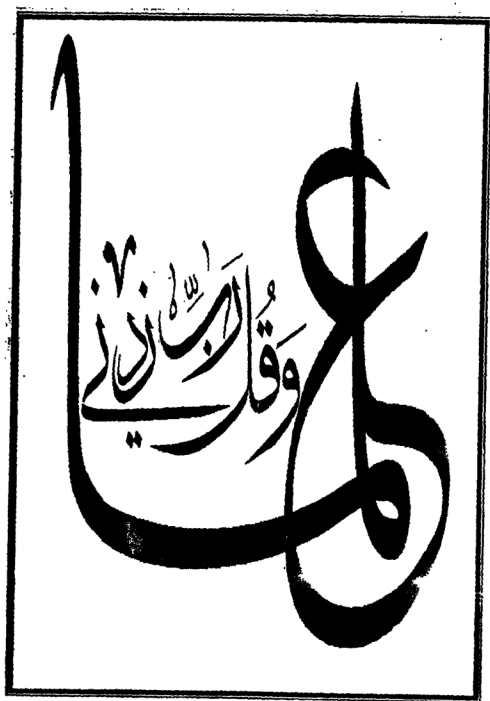 وَقُل رَّبِّ زِدْنِي
علما